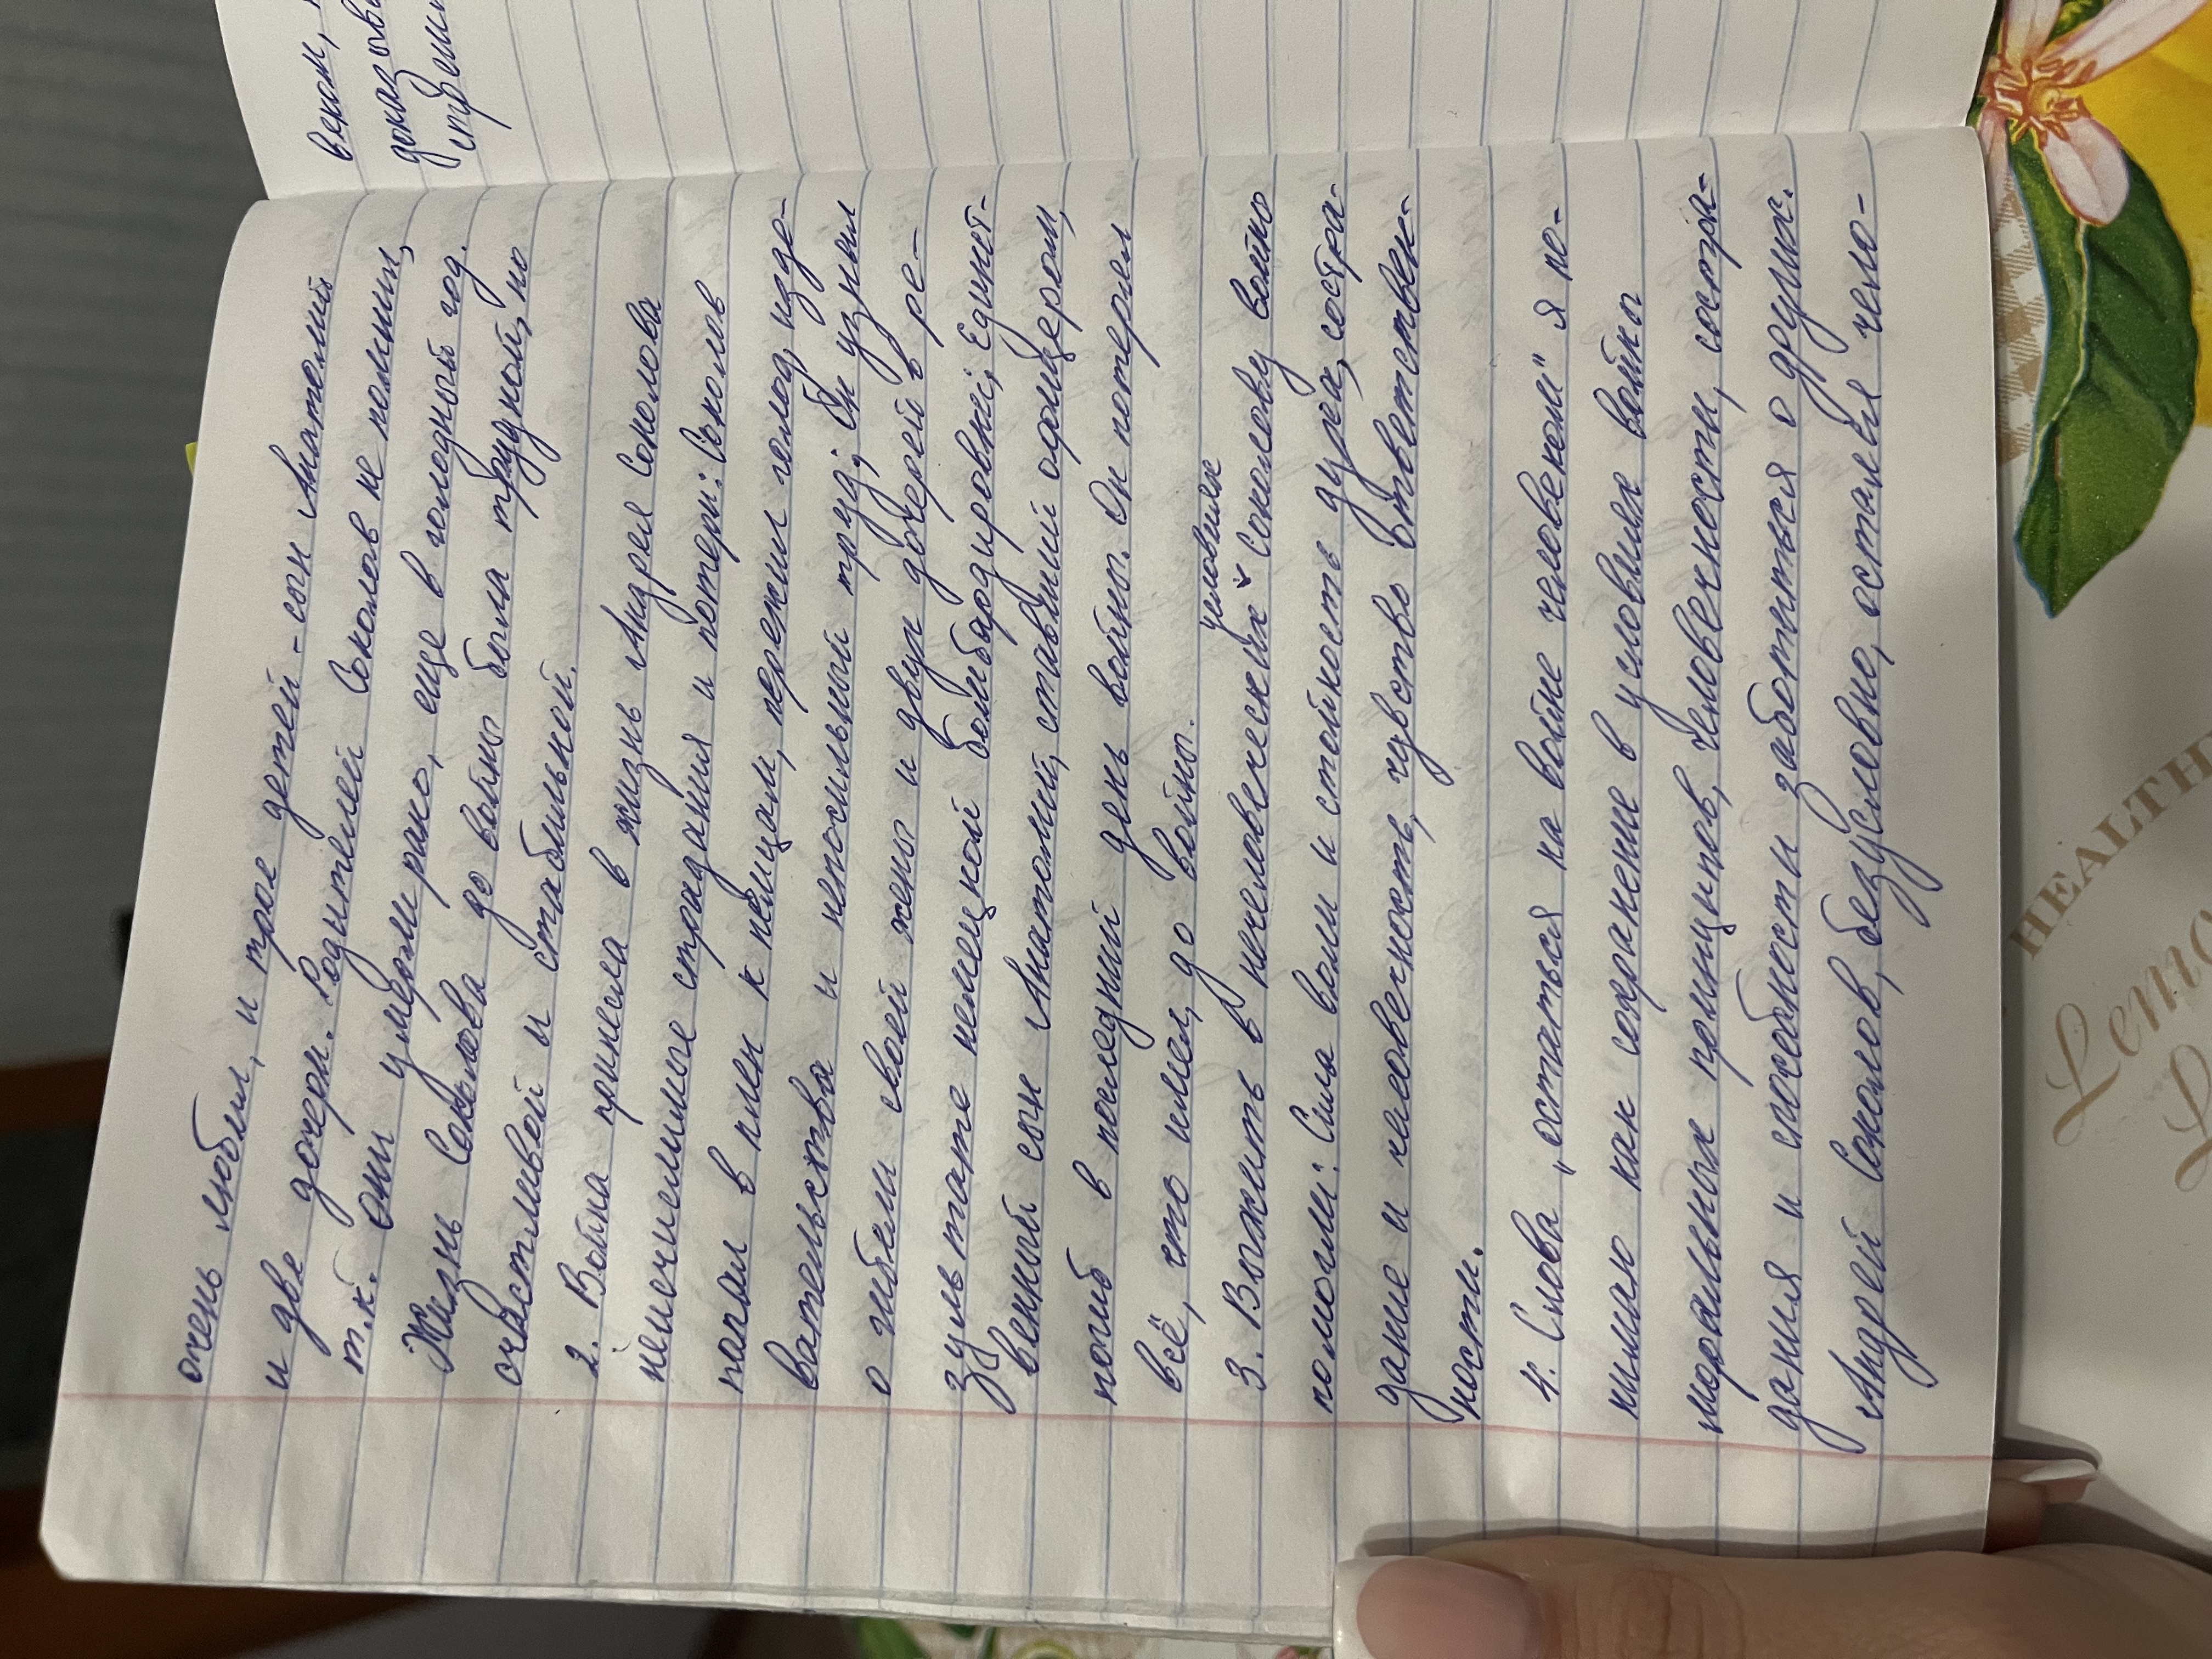 очень любил, и трое детей - сын Анатолий
и две дочери. Родителей Соколов не помнил,
т.к. они умерли рано, еще в голодный год.
Жизнь Соколова до войны была трудной, но
счастливой и стабильной.
2. Война принесла в жизнь Андрея Соколова
неисчислимые страдания и потери: Соколов
попал в плен к немцам, пережил голод, изде-
вательства и непосильный труд; Он узнал
о гибели своей жены и двух дочерей в ре-
зультате немецкой бомбардировки; Единст-
венный сын Анатолий, ставший офицером,
погиб в последний день войны. Он потерял
всё, что имел до войны.
условиях
3. Выжить в нечеловеческих Соколову войны
помогли: Сила воли и стойкость духа, состра-
дание и человечность, чувство ответствен-
ности.
4. Слова "остаться на войне человеком" я по-
нимаю как сохранение в условиях войны
моральных принципов, человечности, состра-
дания и способности заботиться о других.
Андрей Соколов, безусловно, остался чело-
веком,
доказов
HEALTH
Lemo